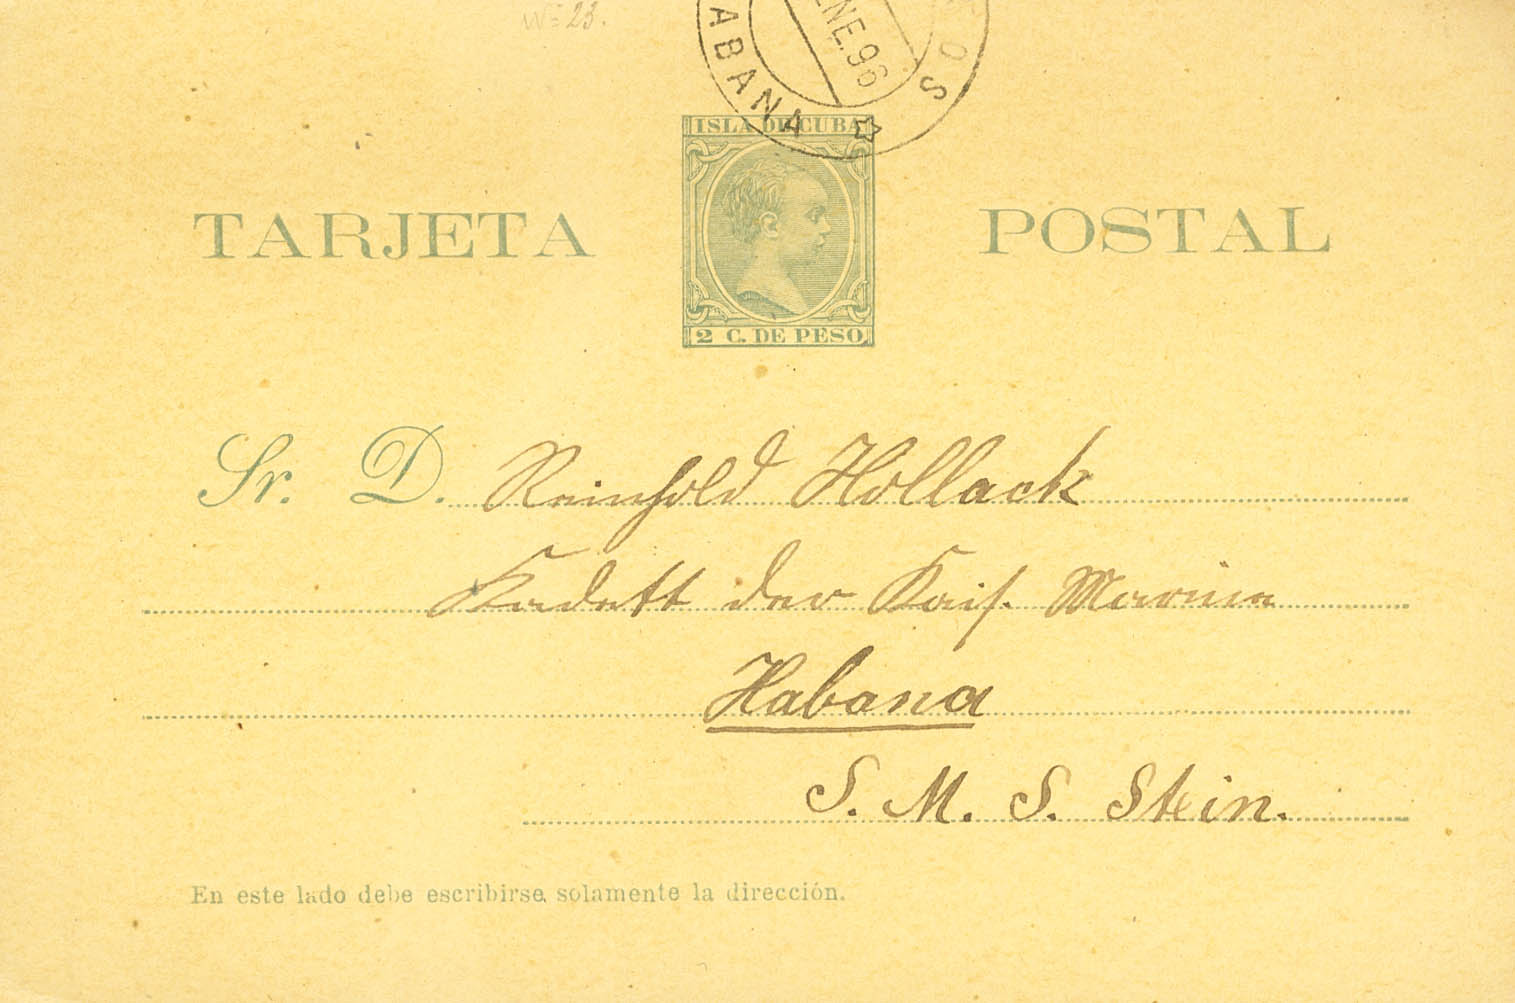 Nº 23.
ENE. 96
HABANA
OS
ISLA DE CUBA
TARJETA POSTAL
2 C. DE PESO
Sr. D. Reinhold Hollack
Kadett der Kais. Marine
Habana
S. M. S. Stein.
En este lado debe escribirse solamente la dirección.